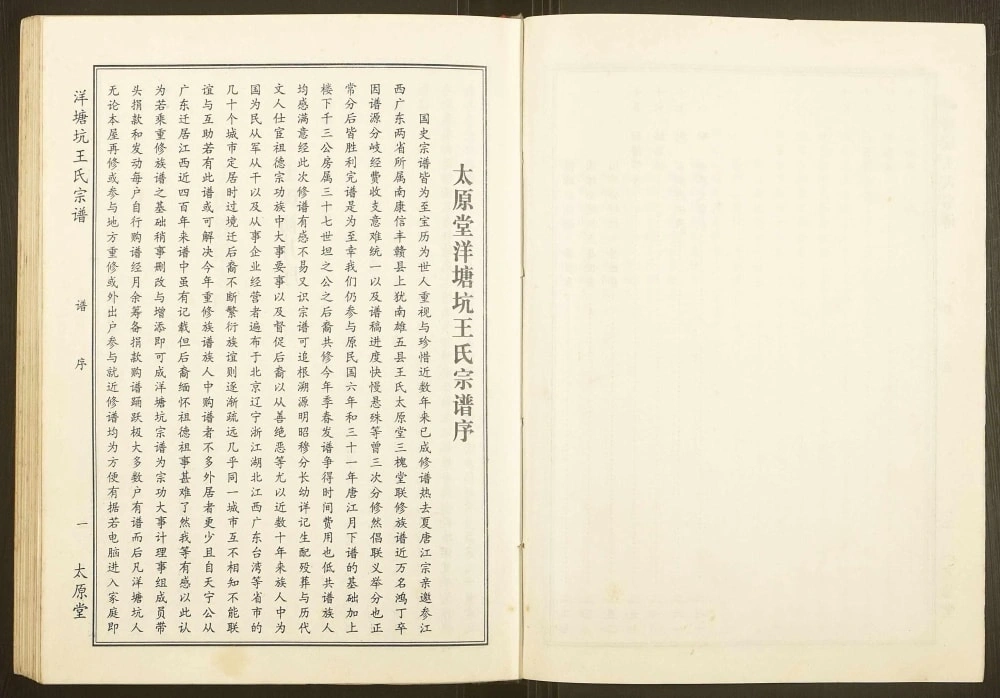 太原堂洋塘坑王氏宗谱序
国史宗谱皆为至宝历为世人重视与珍惜近数年来已成修谱热去夏唐江宗亲邀参江
西广东两省所属南康信丰赣县上犹南雄五县王氏太原堂三槐堂联修族谱近万名鸿丁卒
因谱源分岐经费收支意难统一以及谱稿进度快慢悬殊等曾三次分修然倡联义举分也正
常分后皆胜利完谱是为至幸我们仍参与原民国六年和三十一年唐江月下谱的基础加上
楼下千三公房属三十七世坦之公之后裔共修今年季春发谱争得时间费用也低共谱族人
均感满意经此次修谱有感不易又识宗谱可追根溯源明昭穆分长幼详记生配殁葬与历代
文人仕宦祖德宗功族中大事要事以及督促后裔以从善绝恶等尤以近数十年来族人中为
国为民从军从干以及从事企业经营者遍布于北京辽宁浙江湖北江西广东台湾等省市的
几十个城市定居时过境迁后裔不断繁衍族谊则逐渐疏远几乎同一城市互不相知不能联
谊与互助若有此谱或可解决今年重修族谱族人中购谱者不多外居者更少且自天宁公从
广东迁居江西近四百年来谱中虽有记载但后裔缅怀祖德祖事甚难了然我等有感以此认
为若乘重修族谱之基础稍事删改与增添即可成洋塘坑宗谱为宗功大事计理事组成员带
头捐款和发动每户自行购谱经月余筹备捐款购谱踊跃极大多数户有谱而后凡洋塘坑人
无论本屋再修或参与地方重修或外出户参与就近修谱均为方便有据若电脑进入家庭即
洋塘坑王氏宗谱
谱序
一
太原堂